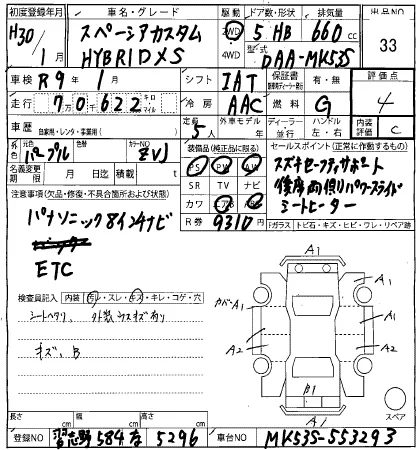 初度登録年月 車名・グレード 駆動 ドア数・形状 排気量 出品NO
H30/1月 スペーシアカスタム HYBRID XS 2WD 4WD 5 HB 660cc 33
型式 DAA-MK53S
車検 R9年1月 シフト IAT 保証書 有・無 評価点
走行 70622 キロ マイル 冷房 AAC 燃料 G 4
車歴 自家用・レンタ・事業用( ) 定員 5人 外車モデル 年 ディーラー 並行 ハンドル 左・右 内装評価 C
外色 元色 パープル カラーNO ZVJ
名義変更期限 月 日迄 積載 t
装備品(純正品に限る)
PS PW AW
SR TV ナビ
カワ エアB ABS
R券 9310円
セールスポイント(正常に作動するもの)
スズキセーフティサポート
後席両側パワースライド
シートヒーター
注意事項(欠品・修復・不具合箇所および状態)
パナソニック8インチナビ
ETC
Fガラス トビ石・キズ・ヒビ・ワレ・リペア跡
検査員記入 内装 ヨレ・スレ・キズ・キレ・コゲ・穴
シートヘタリ、外装ウスキズ有り
キズ、B
A1
A1 カバーA1 A1
A2 A2
B1
A1
スペア
長さ cm 幅 cm 高さ cm
登録NO 習志野 584 な 5296 車台NO MK53S-553293